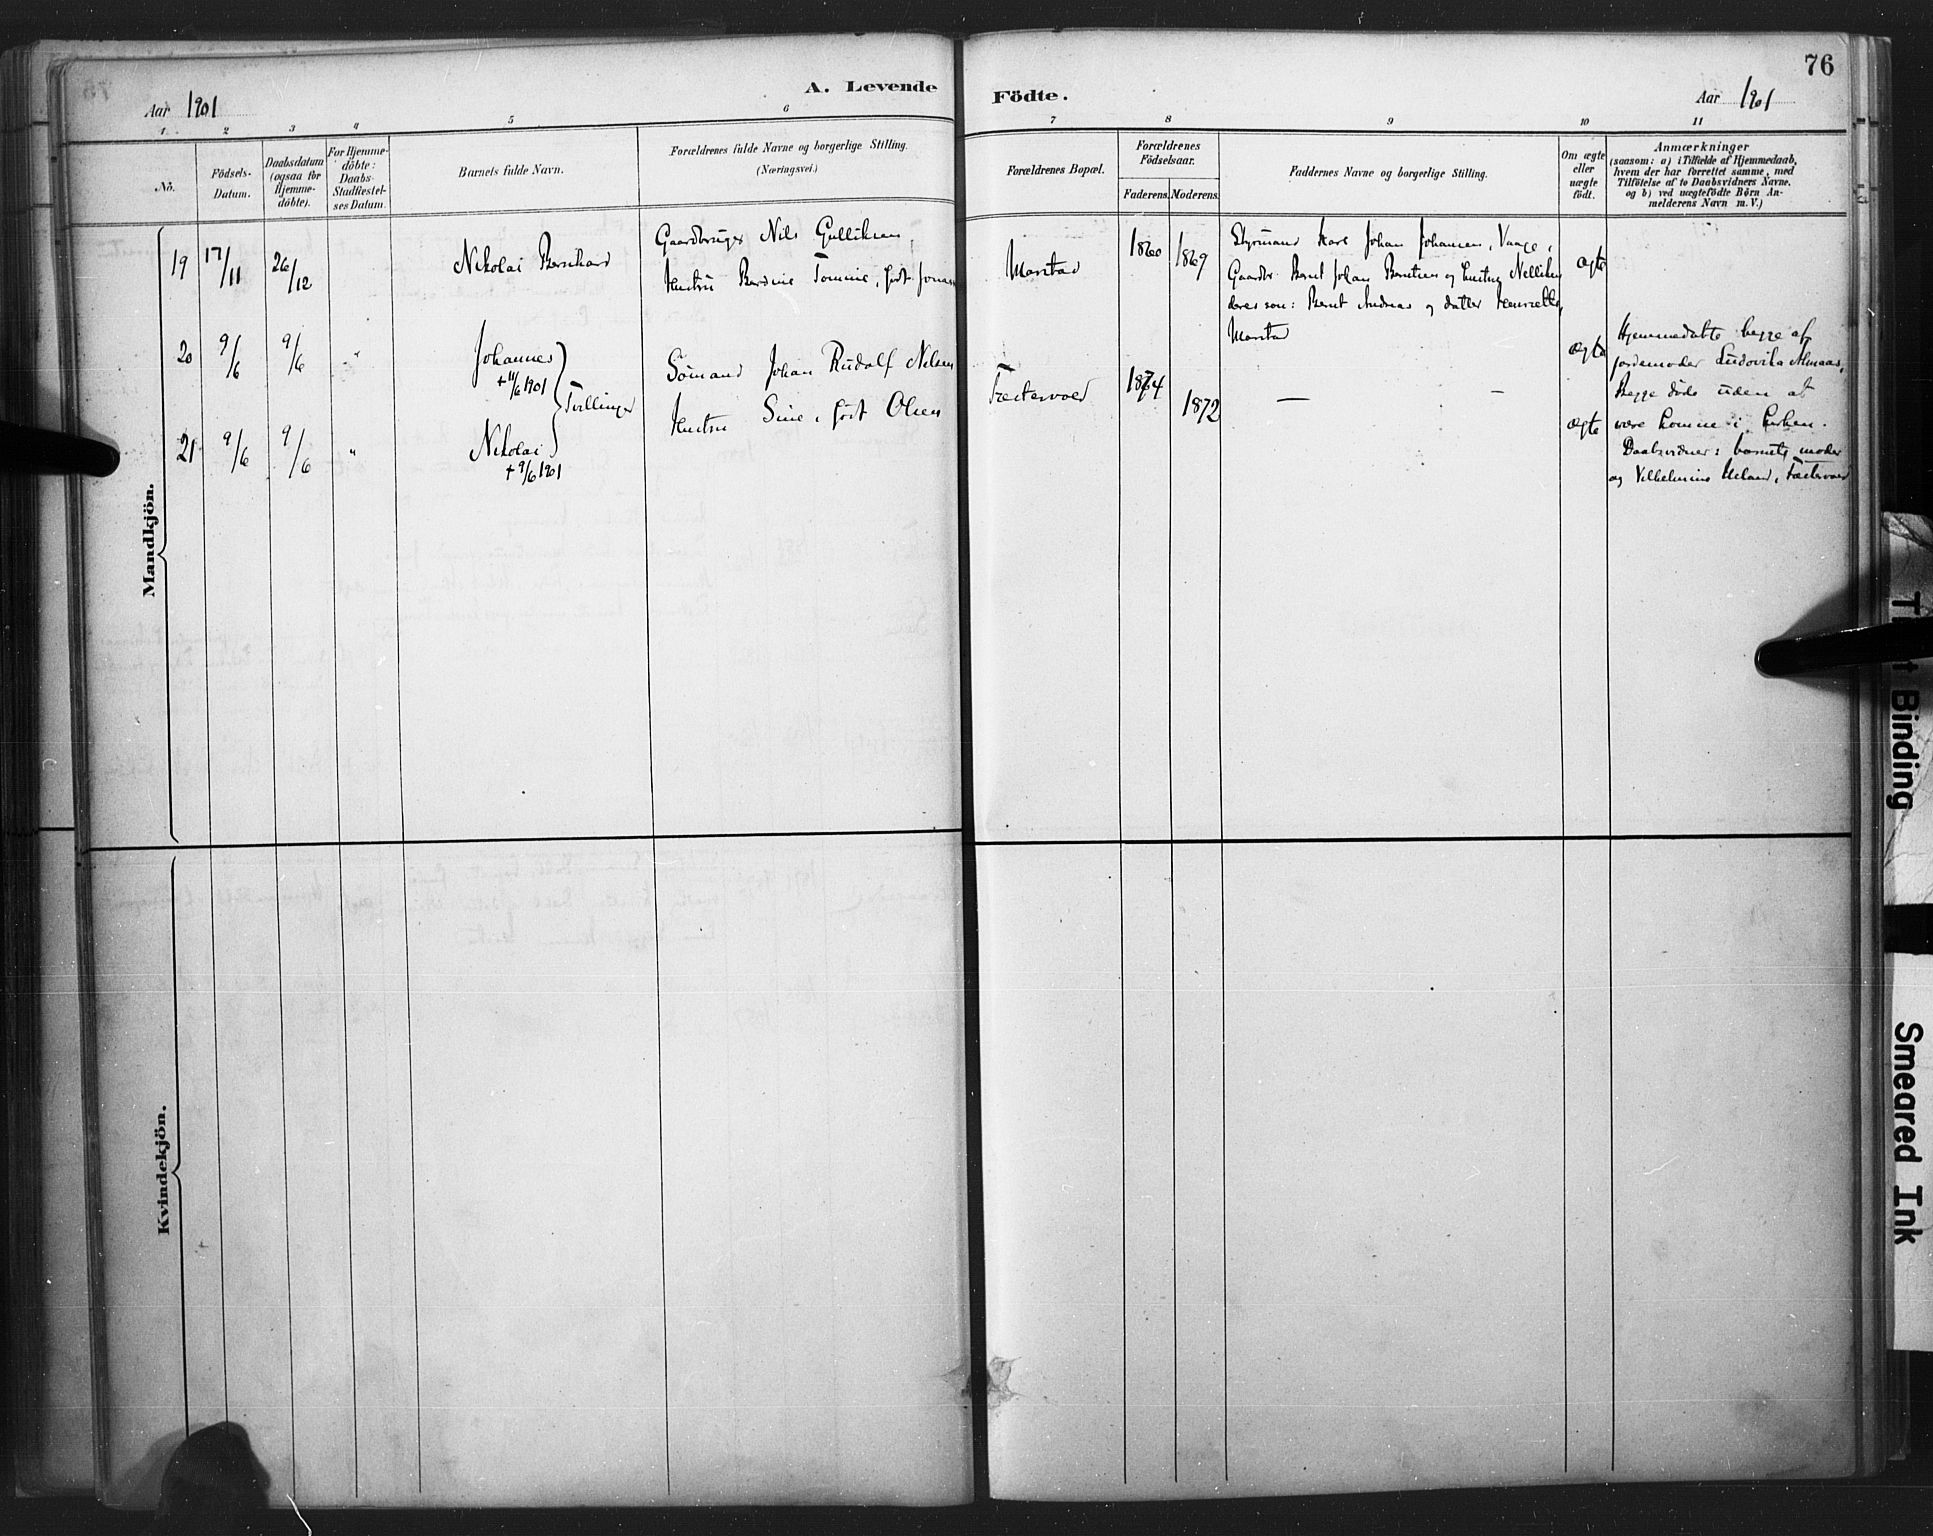 76
A. Levende Födte.
Aar 1901
Aar 1901
1. 2 3 4 5 6 7 8 9 10 11
Nö.
Födsels-
Datum.
Daabsdatum
(ogsaa for
Hjemme-
döbte).
For Hjemme-
döbte:
Daabs-
Stadfæstel-
ses Datum.
Barnets fulde Navn.
Forældrenes fulde Navne og borgerlige Stilling.
(Næringsvei.)
Forældrenes Bopæl.
Forældrenes
Födselsaar.
Faderens. Moderens.
Faddernes Navne og borgerlige Stilling.
Om ægte
eller
uægte
födt.
Anmærkninger
(saasom: a) i Tilfælde af Hjemmedaab,
hvem der har forrettet samme, med
Tilföielse af to Daabsvidners Navne,
og b) ved uægtefödte Börn An-
melderens Navn m. V.)
Mandkjön.
19 17/11 26/12 Nikolai Bernhard
Gaardbruger Nils Gulliksen,
Hustru Berdine Tomine, født Jonas
Marstad 1860 1869
Styrmand Karl Johan Johansen, Vaage,
Gaardbr. Bernt Johan Berntsen og hustru Nellike
deres søn: Bernt Andreas og datter
Marstad
ægte
20 9/6 9/6 " Johannes
+ 11/6 1901
Tvillinger
21 9/6 9/6 " Nikolai
+ 9/6 1901
Sømand Johan Rudolf Nilsen
Hustru Sine, født Olsen
1874 1872
— —
ægte
ægte
Hjemmedøbte begge af
jordemoder Ludovika
Begge døde uden at
være komne i kirken.
Daabsvidner: barnets moder
og Vilhelmine
Kvindekjön.
Tight Binding
Smeared Ink